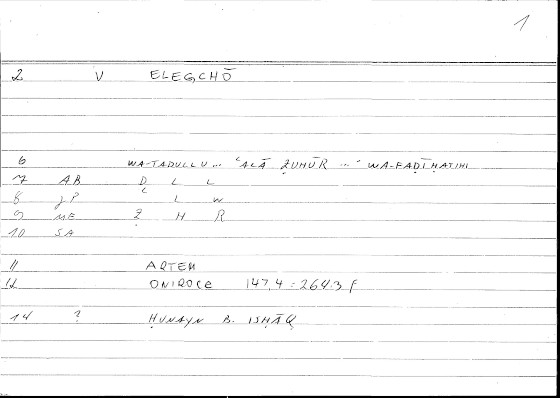 1
2 V ELEGCHŌ
6 WA-TADULLU ... ʿALĀ ẒUHŪR ... WA-FAḌĪḤATIHI
7 AB D L L
8 JP ʿ L W
9 ME Ẓ H R
10 SA
11 ARTEM
12 ONIROCR 147,4 = 264.3 f
14 ? ḤUNAYN B. ISḤĀQ